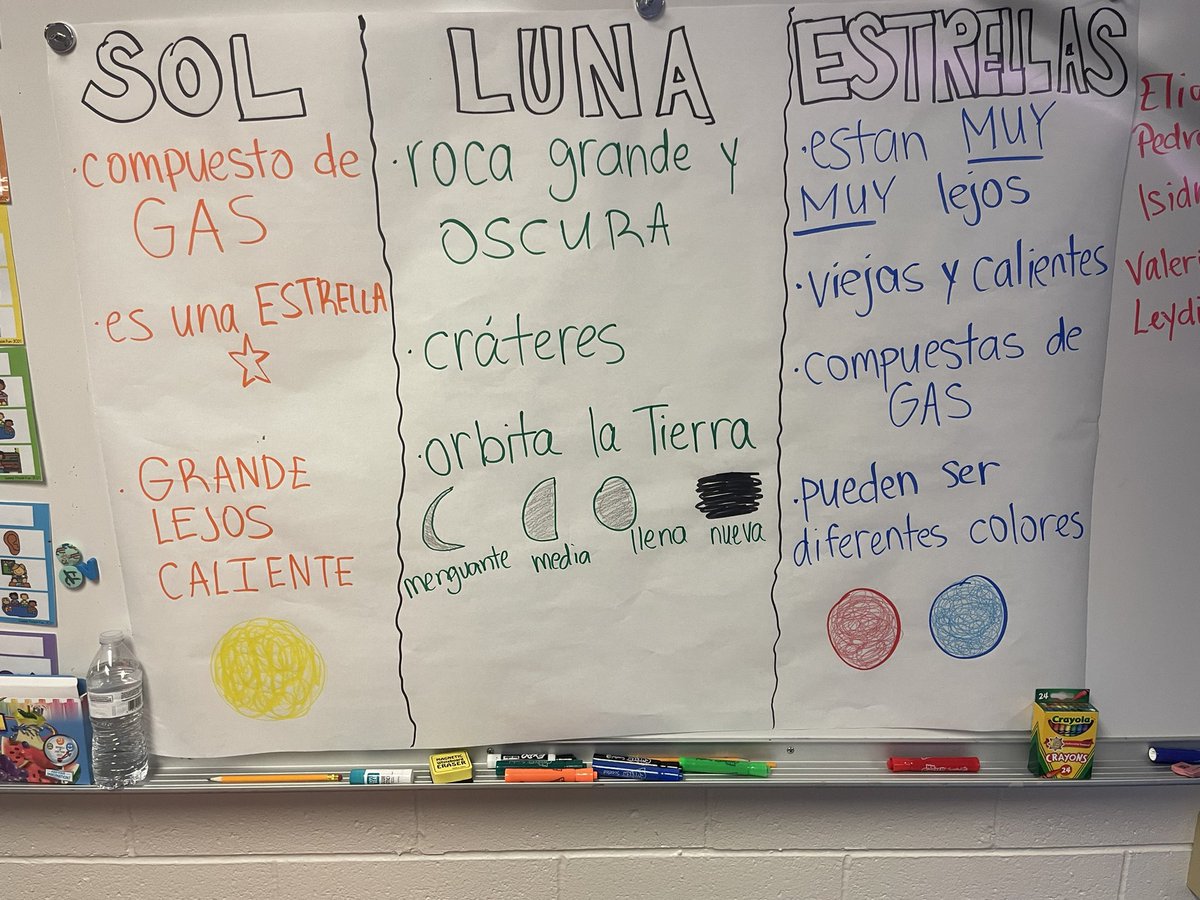 SOL
·compuesto de
GAS
·es una ESTRELLA
·GRANDE
LEJOS
CALIENTE
LUNA
·roca grande y
OSCURA
·cráteres
·orbita la Tierra
menguante media llena nueva
ESTRELLAS
·estan MUY
MUY lejos
·viejas y calientes
·compuestas de
GAS
·pueden ser
diferentes colores
Elia
Pedro
Isidr
Valeri
Leydi
MAGNETIC
ERASER
24
Crayola
CRAYONS
24